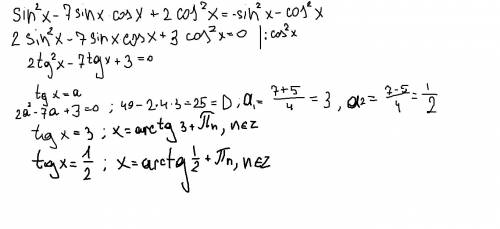 sin²x - 7 sinx cosx + 2 cos²x = -sin²x - cos²x
2 sin²x - 7 sinx cosx + 3 cos²x = 0 | : cos²x
2tg²x - 7tgx + 3 = 0
tgx = a
2a² - 7a + 3 = 0 ; 49 - 2·4·3 = 25 = D, a₁ = (7+5)/4 = 3, a₂ = (7-5)/4 = 1/2
tgx = 3 ; x = arctg 3 + Πn, n∈z
tgx = 1/2 ; x = arctg 1/2 + Πn, n∈z